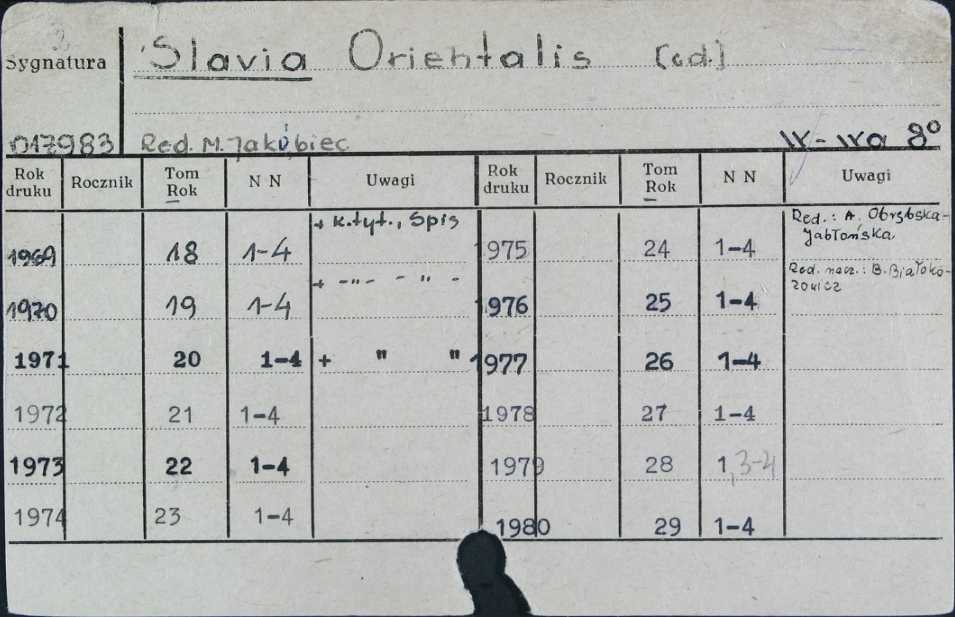 Sygnatura Slavia Orientalis [cd.]
017983 Red. M. Jakóbiec W-wa 8°
Rok druku Rocznik Tom Rok N N Uwagi Rok druku Rocznik Tom Rok N N Uwagi
1969 18 1-4 + k.tyt., Spis 1975 24 1-4 Red.: A. Obrębska-Jabłońska
1970 19 1-4 + -"- - " - 1976 25 1-4 Red. nacz.: B. Białokozowicz
1971 20 1-4 + " " 1977 26 1-4
1972 21 1-4 1978 27 1-4
1973 22 1-4 1979 28 1,3-4
1974 23 1-4 1980 29 1-4